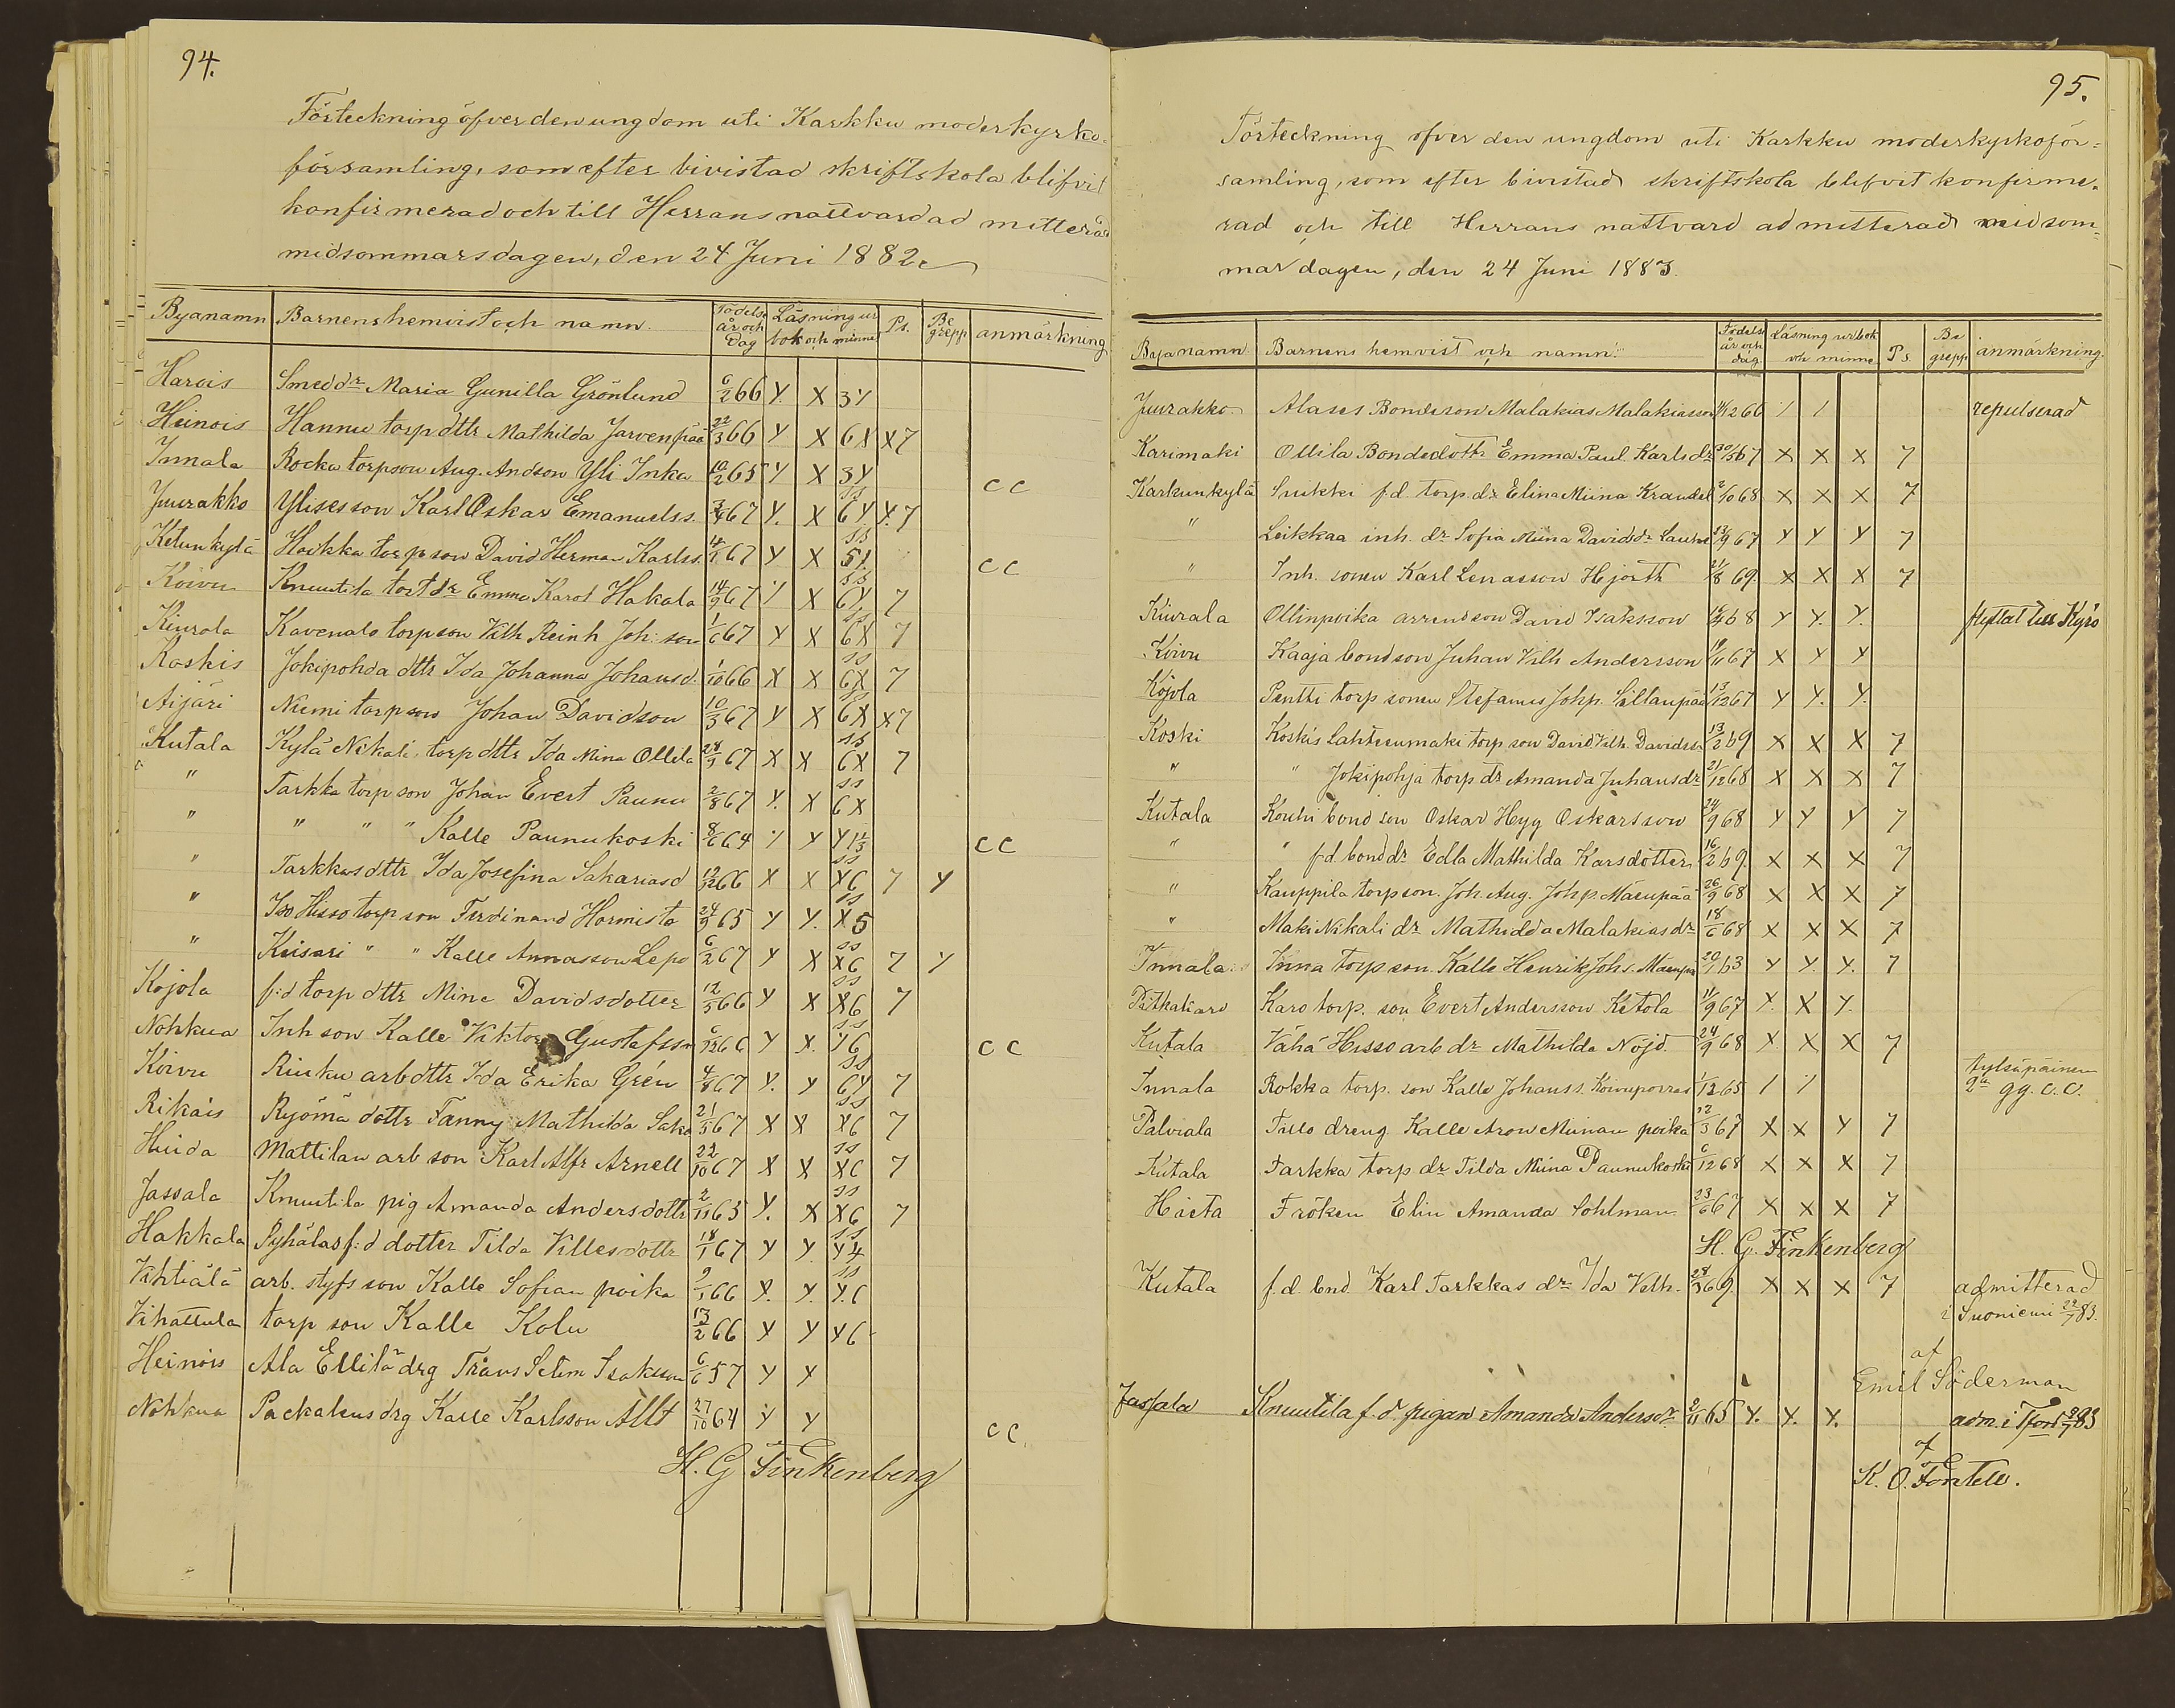 94.
Förteckning öfver den ungdom uti Karkku moderkyrko-
församling, som efter bivistad skriftskola blifvit
konfirmerad och till Herrans nattvard ad mitterad
midsommarsdagen, den 24 Juni 1882.
Byanamn Barnens hemvist och namn. Födelse år och Dag Läsning ur bok och minne Ps. Be grepp anmärkning
Harois Smed dr Maria Gunilla Grönlund 6/2 66 Y. X 3 Y
Heinois Hannu torp dttr Mathilda Jarvenpää 22/3 66 Y X 6 X X 7
Innala Rocka torpson Aug. Andson Yli Inka 10/2 65 Y X 3 Y CC
Juurakko Ylises son Karl Oskar Emanuelss. 3/4 67 Y. X ss 6 Y. Y. 7
Ketunkylä torp son David Herman Karlss. 67 Y X ss 5 Y. CC
Koivu Knuutila Emma Karol Hakala 14/9 67 Y X ss 6 Y 7
Kiurala torpson Vilh Reinh Joh: son 1/6 67 Y X ss 6 X 7
Koskis Jokipohda dttr Ida Johanna Johansd. 1/10 66 X X ss 6 X 7
Aijäri Niemi torpson Johan Davidson 10/3 67 Y X ss 6 X X 7
Kutala Kylä Nikali torp dttr Ida Mina Ollila 28/1 67 X X ss 6 X 7
" Tarkka torp son Johan Evert Paunu 2/8 67 Y. X ss 6 X
" " " " Kalle Paunukoski 8/6 64 Y Y Y 1 1/3 CC
" Tarkkas dttr Ida Josefina Sakariasd 12/12 66 X X ss X 6 7 Y
" Iso Hisso torp son Ferdinand Hormisto 24/9 65 Y Y. ss X 5
" Keisari " " Kalle Annasson Lepo 6/2 67 Y X ss X 6 7 Y
Kojola f:d torp dttr Mina Davidsdotter 12/5 66 Y X ss X 6 7
Nohkua Inh son Kalle Viktor Gustafsson 6/12 66 Y X. ss Y 6 CC
Koivu Rinku arb dttr Ida Erika Grén 4/8 67 Y. Y ss 6 Y 7
Rikais Ryömä dottr Fanny Mathilda Saka 21/5 67 X X ss X 6 7
Huida Mattilan arb son Karl Alfr Arnell 22/10 67 X X ss X 6 7
Jassala Knuutila pig Amanda Andersdottr 2/11 65 Y. X ss X 6 7
Hakkala Pyhälas f:d dotter Tilda Villesdottr 18/1 67 Y Y. ss Y 4
Vihtiälä arb. styfs son Kalle Sofian poika 9/1 66 Y. Y. ss Y. 6
Vihattula torp son Kalle Kolu 13/2 66 Y Y Y 6
Heinois Ala Ellilä drg Frans Selim Isaksson 6/6 57 Y Y
Nohkua Packalens drg Kalle Karlsson Allt 27/10 64 Y Y CC.
H. G Finkenberg
95.
Förteckning öfver den ungdom uti Karkku moderkyrkoför=
samling, som efter bivistad skriftskola blifvit konfirme=
rad och till Herrans nattvard admitterad midsom=
mar dagen, den 24 Juni 1883.
Byanamn Barnens hemvist och namn. Födelse år och dag Läsning ur bok och minne Ps Be grepp anmärkning.
Juurakko Alases Bondeson Malakias Malakiasson 4/12 66 / / repulserad
Karimaki Ollila Bondedottr Emma Paul. Karlsdr 30/5 67 X X X 7
Karkunkylä Suikki f.d. torp. dr Elina Miina Krandel 2/10 68 X X X 7
" Leikkaa inh. dr Sofia Miina Davidsdr 23/9 67 Y Y Y 7
" Inh. sonen Karl Lenasson Hjorth 21/8 69. X X X 7
Kiurala Ollinpoika arrendson David Isaksson 68 Y Y. Y. flyttat till Kyrö
Koivu Kaaja bondson Juhan Vilh Andersson 11/11 67 X Y Y
Kojola Pentti torp sonen Stefanus Johp. Sillanpää 13/12 67 Y Y. Y.
Koski Koskis Lahteenmaki torp. son David Vilh. Davidss. 13/2 69 X X X 7
" " Jokipohja torp dr Amanda Juhansdr 21/12 68 X X X 7
Kutala Kouhi bond son Oskar Hyg Oskarsson 24/9 68 Y Y Y 7
" " f.d. bond dr Edla Mathilda Karsdotter 16/2 69 X X X 7
" Kauppila torpson. Joh. Aug. Johp. Mäenpää 26/9 68 X X X 7
" Maki Nikali dr Mathilda Malakiasdr 18/6 68 X X X 7
Innala Inna torp son. Kalle Henrik Johs. Mäenpää 20/1 63 Y Y. Y. 7
Karo torp. son Evert Andersson Ketola 11/9 67 X. X Y.
Kutala Vähä Hisso arb dr Mathilda Nöjd. 24/9 68 X X X 7
Innala Rokka torp. son Kalle Johanss. 1/12 65 / / tylsäpäinen 2a gg. C.C.
Palviala dreng Kalle poika 12/3 67 X X Y 7
Kutala Tarkka torp dr Tilda Miina Paunukoski 6/12 68 X X X 7
Haeta Fröken Elin Amanda Sohlman 23/6 67 X X X 7
H. G. Finkenberg
Kutala f.d. bnd. Karl Tarkkas dr Ida Vilh. 28/3 69. X X X 7 admitterad
i Suoniemi 22/7 83.
af
Emil Söderman
Jassala Knuutila f.d. pigan Amanda Andersdr 2/11 65 Y. Y. Y. adm. i 83
af
K. O. Fontell.